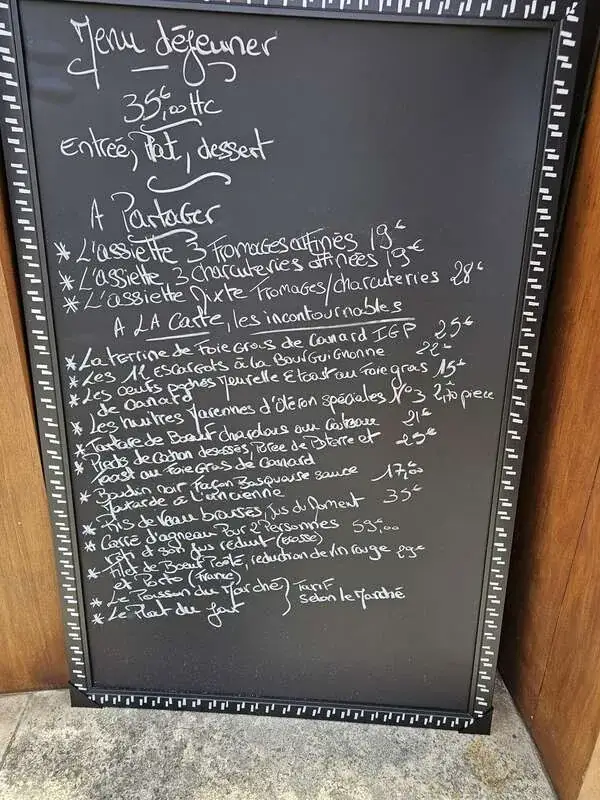 Menu déjeuner
35€,00 HC
Entrée, Plat, dessert
A Partager
* L'assiette 3 Fromages affinés 19€
* L'assiette 3 charcuteries affinées 19€
* L'assiette Mixte Fromages/charcuteries 28€
A LA Carte, les incontournables
* La terrine de Foie Gras de Canard IGP 25€
* Les 12 escargots à la Bourguignonne 22€
* Les oeufs pochés Meurette Etoast au Foie gras 15€
de Canard
* Les huîtres Marennes d'Oléron spéciales N°3 2,70 piece
* Tartare de Boeuf charolais au couteau 21€
* Pieds de cochon desossés, Purée de P terre et 25€
toast au Foie Gras de Canard
* Boudin noir Façon Basquaise sauce 17,00
Moutarde à l'ancienne
* Ris de Veau braisés, jus du Moment 35€
* Carré d'agneau Pour 2 Personnes 59,00
roti et son jus réduit (Ecosse)
* Filet de Boeuf Poélé, reduction de vin rouge 29€
et Porto (France)
* Le Poisson du Marché } Tarif
* Le Plat du jour } selon le Marché